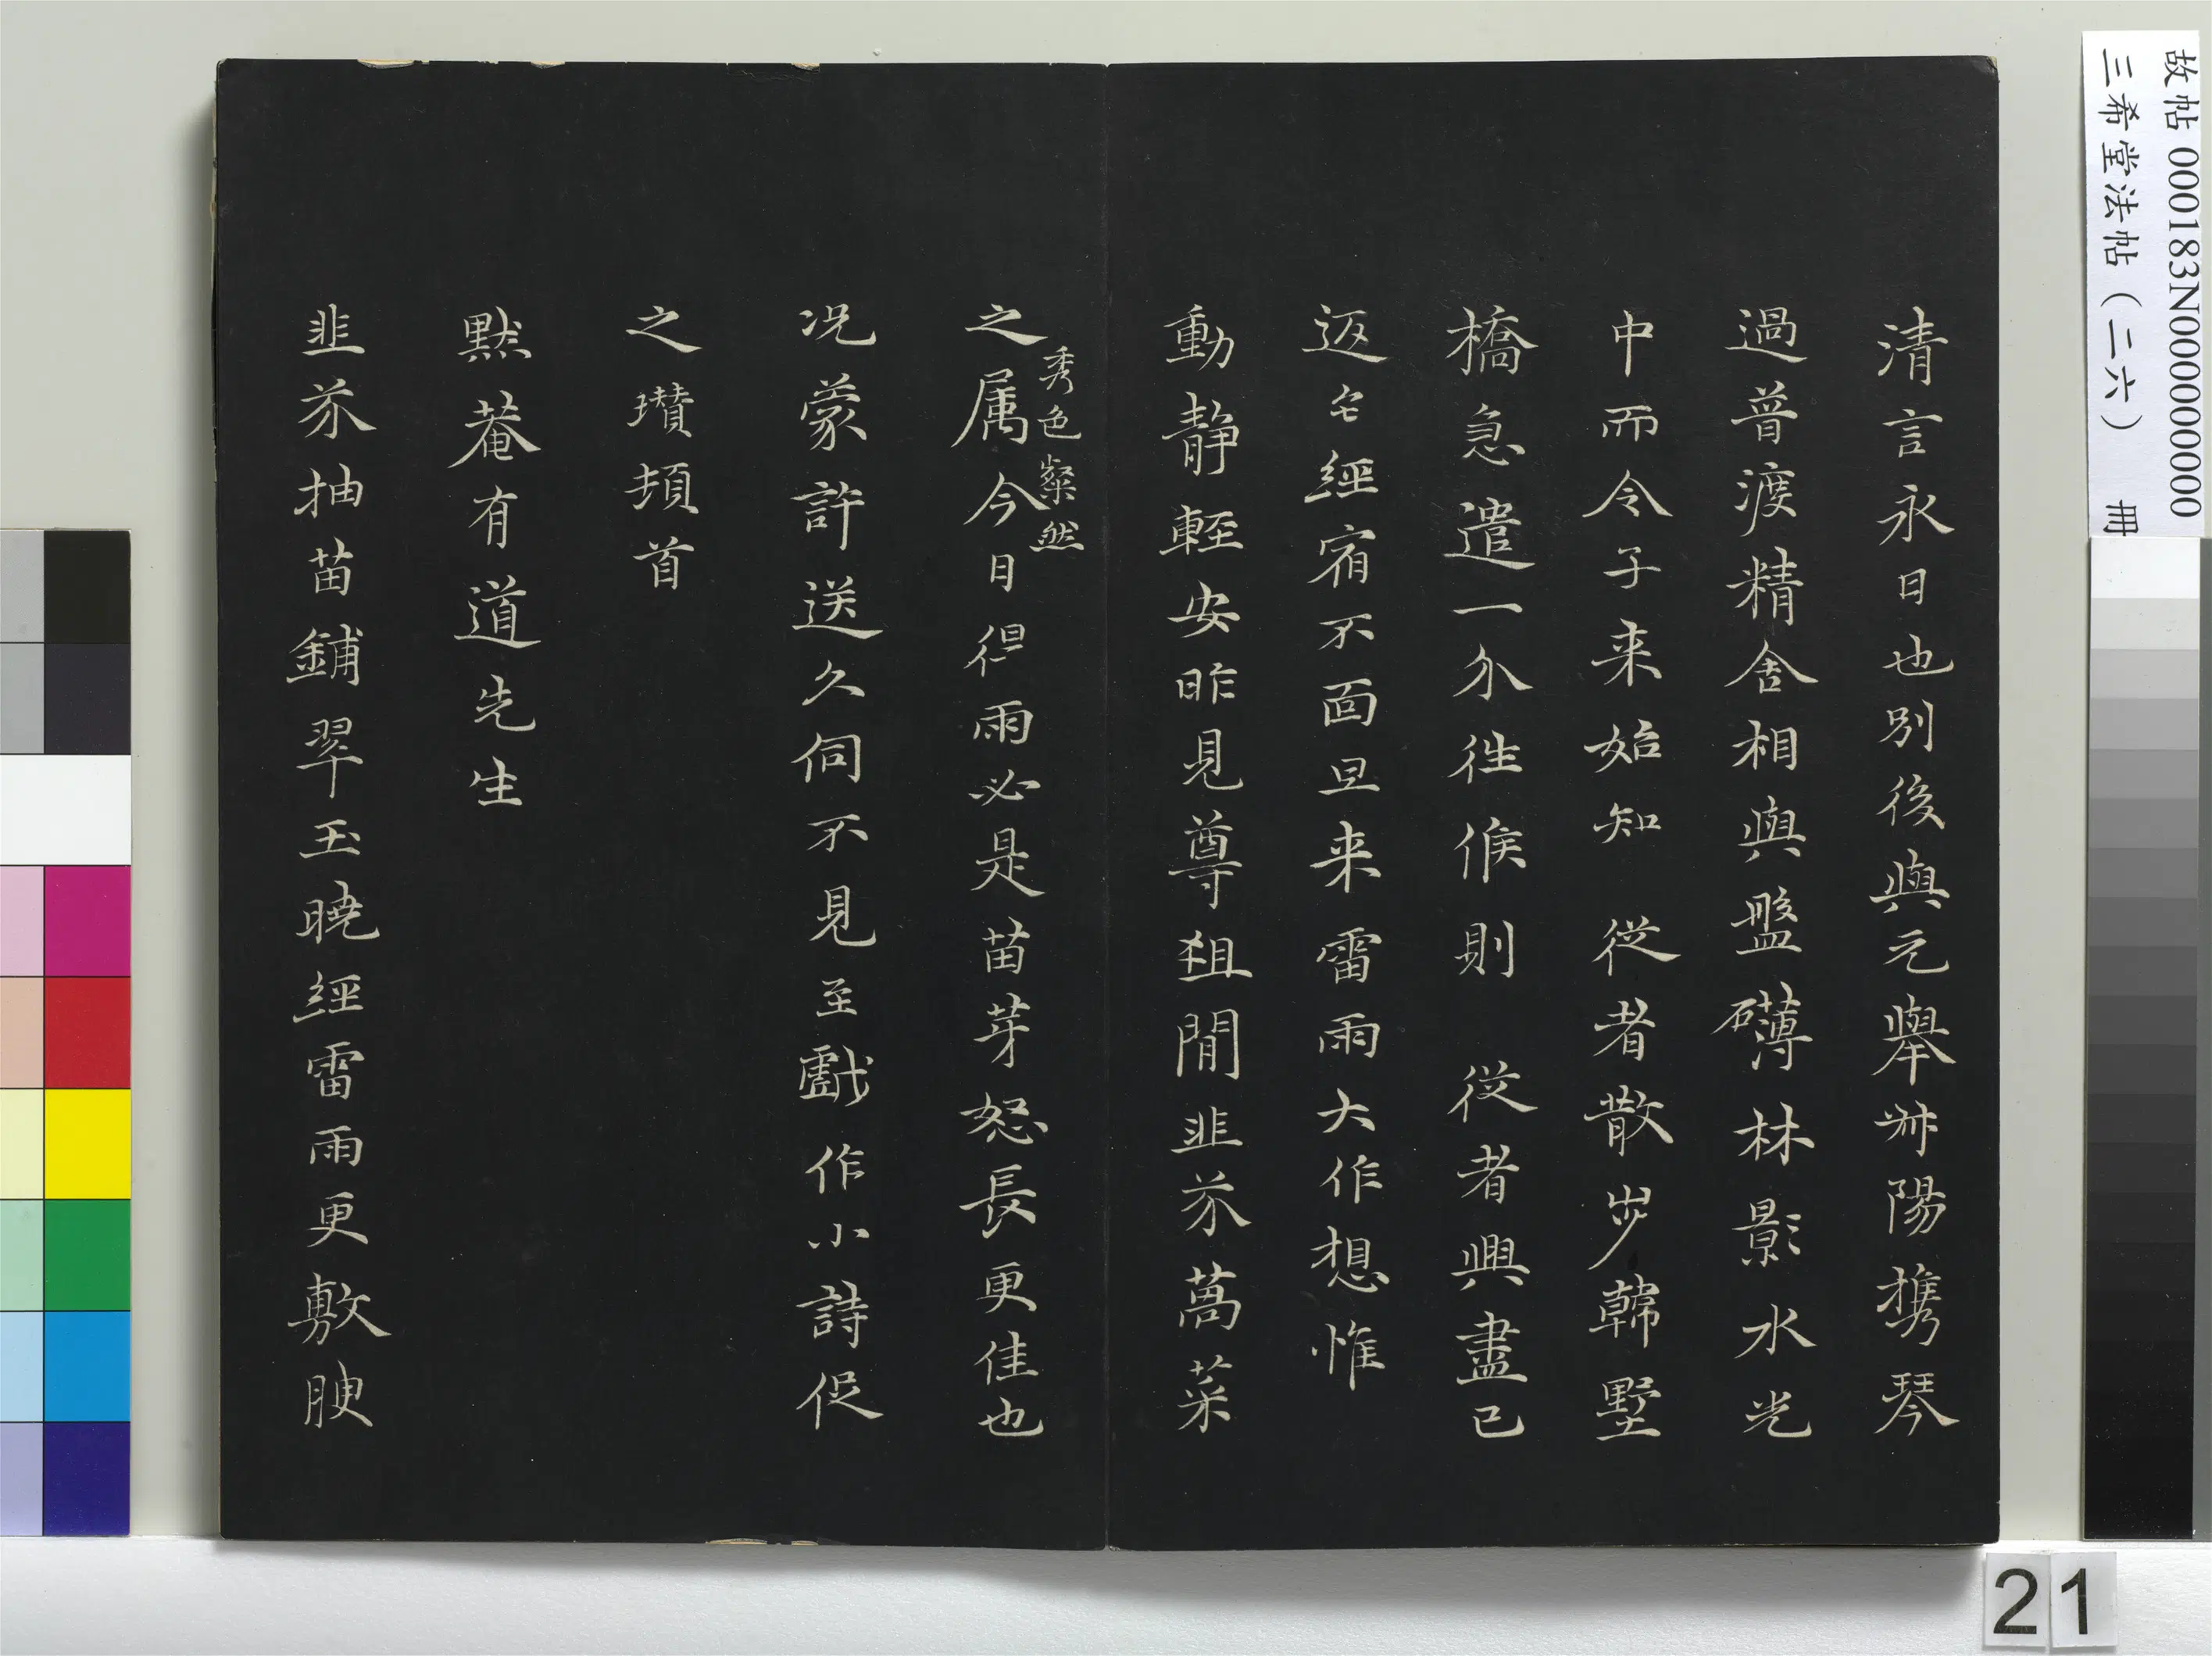 清言永日也別後與元舉叔陽携琴
過普渡精舍相與盤礴林影水光
中而令子来始知 從者散步韓墅
橋急遣一介徃候則 從者興盡已
返矣經宿不面旦来雷雨大作想惟
動静輕安昨見尊俎間韭芥萵菜
之属
秀色粲然
今日得雨必是苗芽怒長更佳也
况蒙許送久伺不見至戲作小詩促
之瓚頓首
黙菴有道先生
韭芥抽苗鋪翠玉曉經雷雨更敷腴
故帖 000183N000000000
三希堂法帖（二六） 冊
21